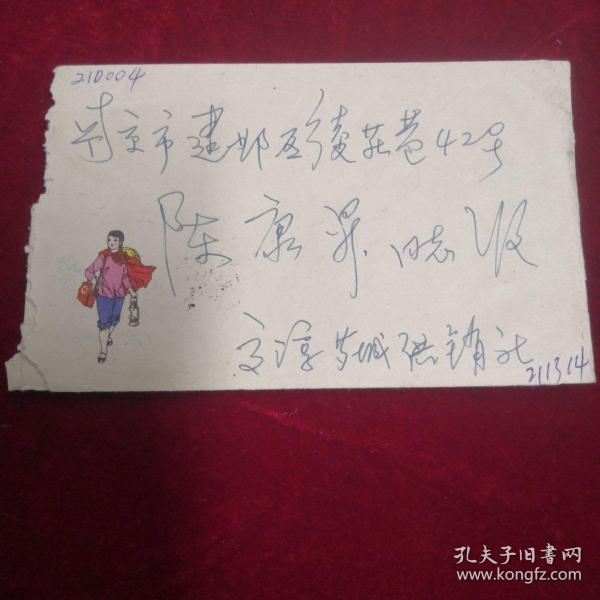 210004
南京市建邺区绫庄巷42号
陈康昇同志收
高淳苏城供销社
211314
孔夫子旧书网
www.kongfz.com